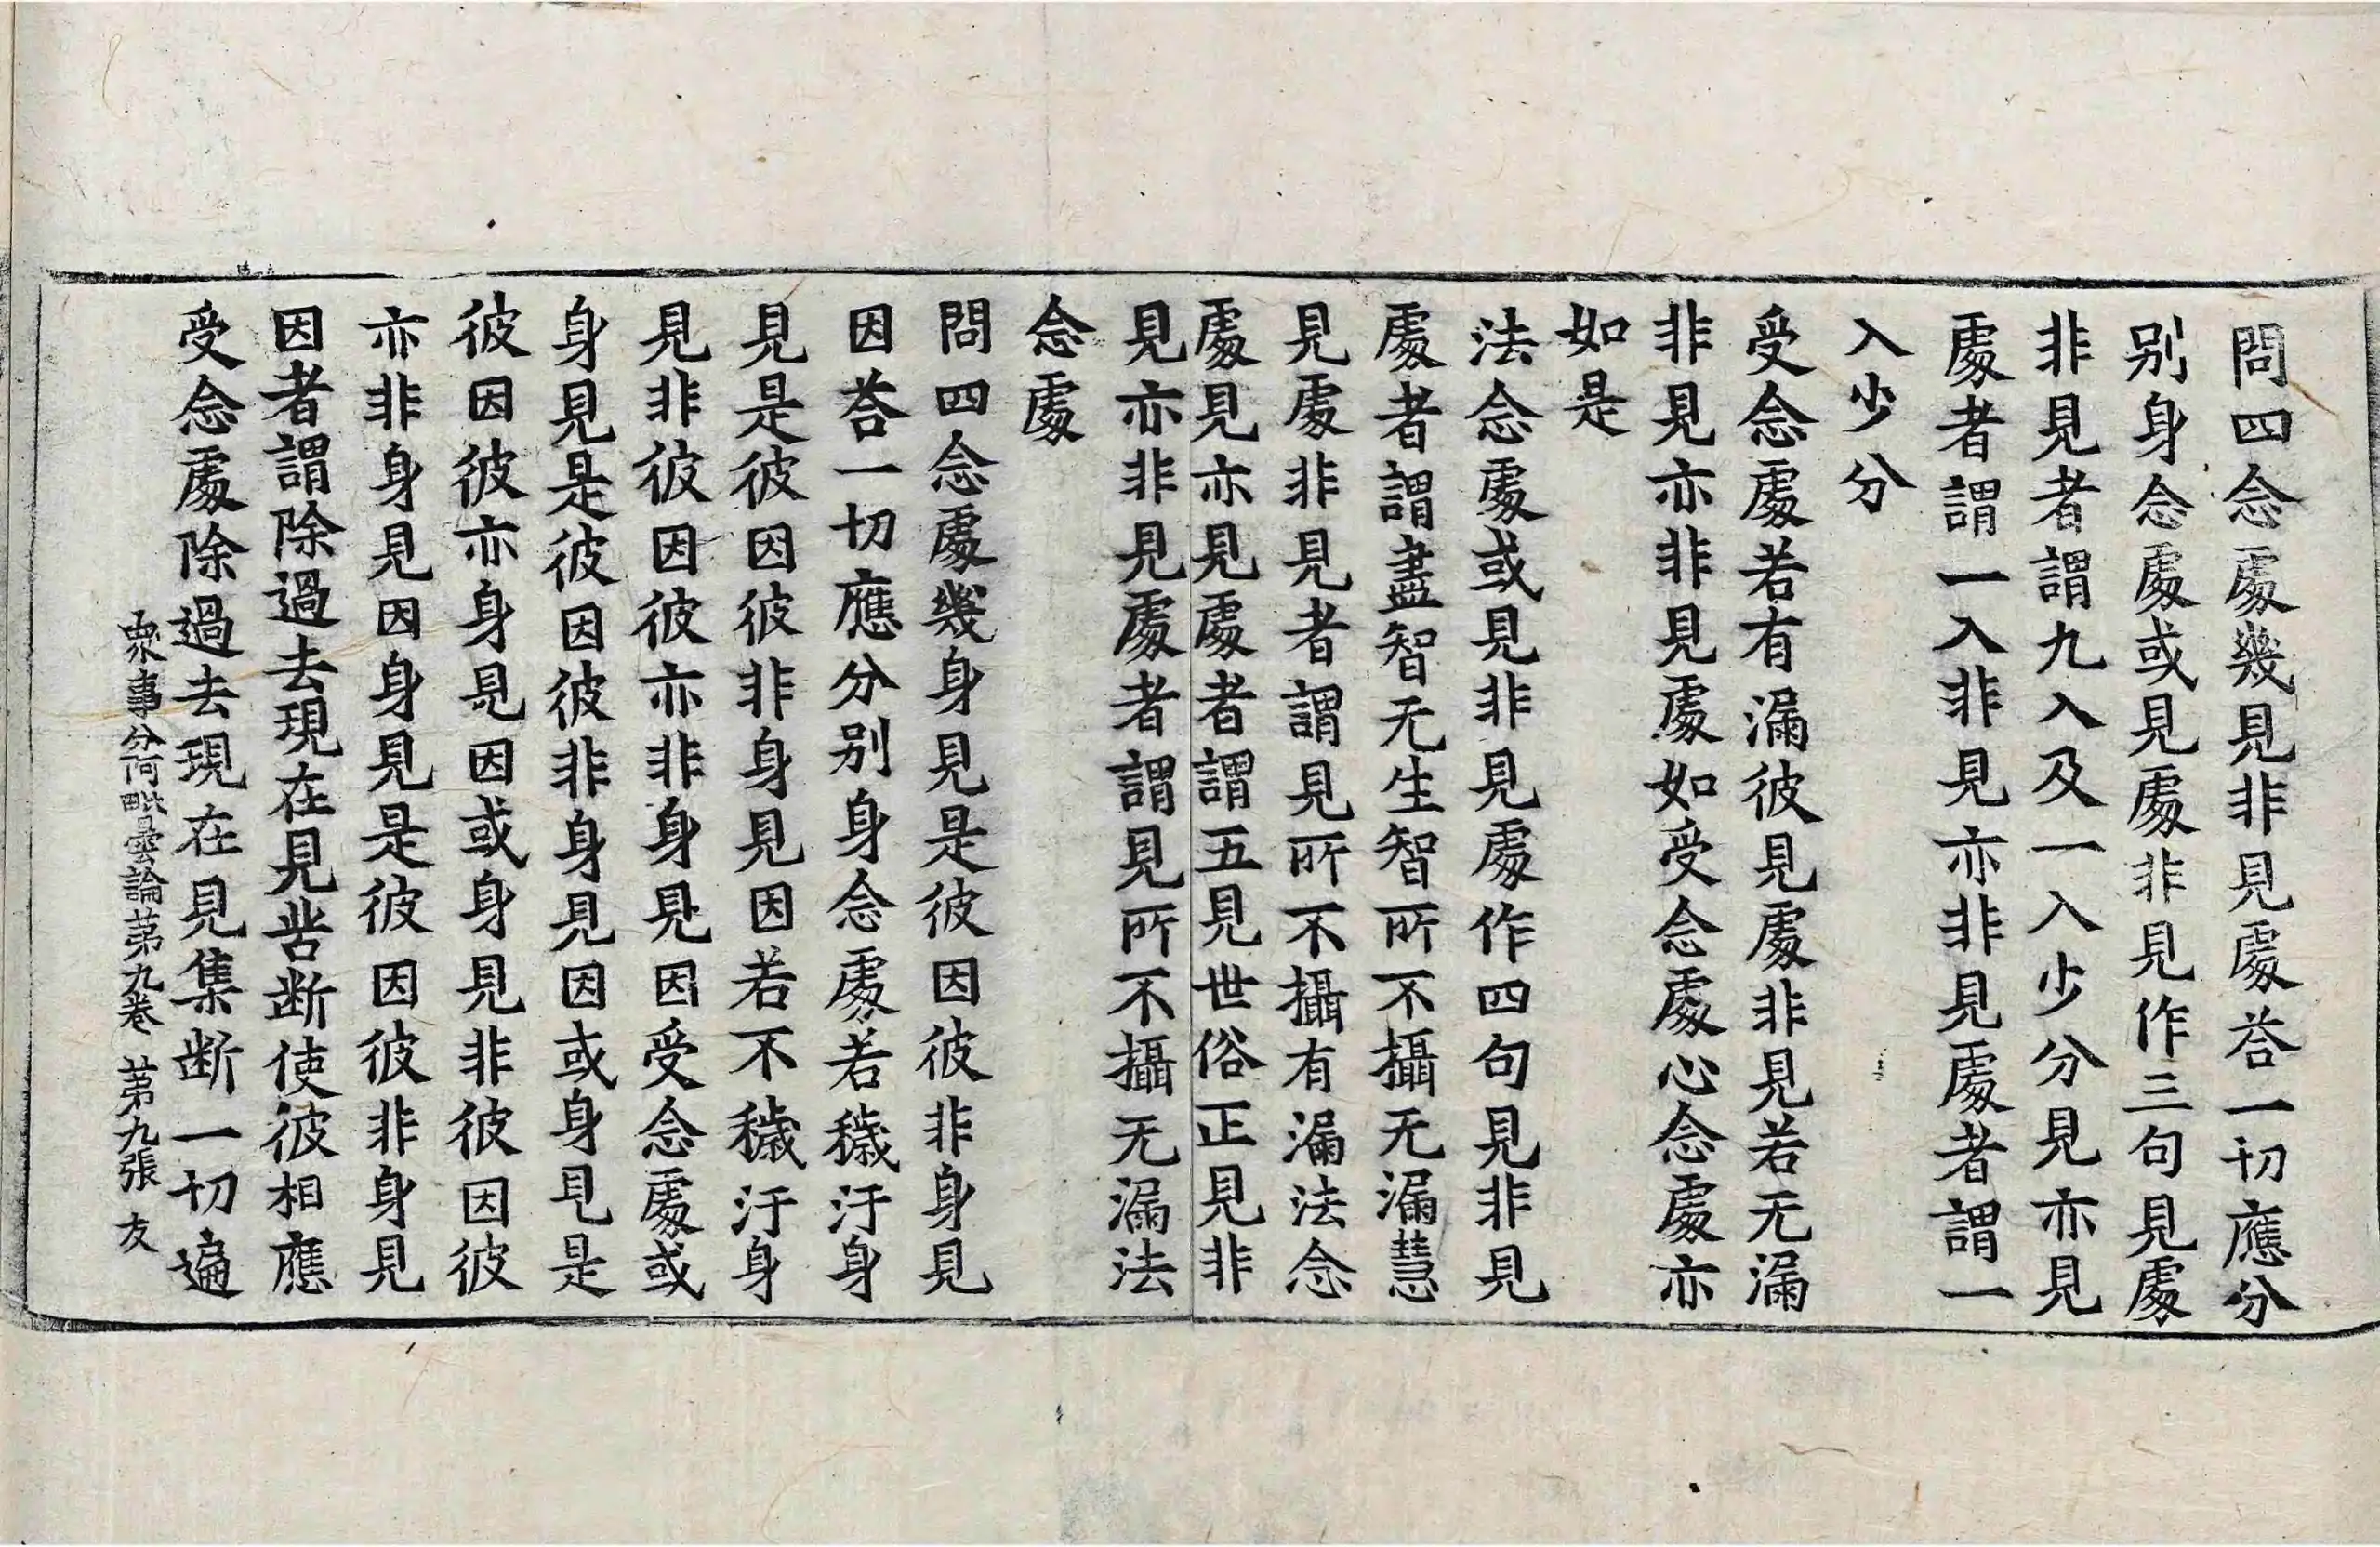 問四念處幾見非見處荅一切應分
别身念處或見處非見作三句見處
非見者謂九入及一入少分見亦見
處者謂一入非見亦非見處者謂一
入少分
受念處若有漏彼見處非見若无漏
非見亦非見處如受念處心念處亦
如是
法念處或見非見處作四句見非見
處者謂盡智无生智所不攝无漏慧
見處非見者謂見所不攝有漏法念
處見亦見處者謂五見世俗正見非
見亦非見處者謂見所不攝无漏法
念處
問四念處幾身見是彼因彼非身見
因荅一切應分别身念處若穢汙身
見是彼因彼非身見因若不穢汙身
見非彼因彼亦非身見因受念處或
身見是彼因彼非身見因或身見是
彼因彼亦身見因或身見非彼因彼
亦非身見因身見是彼因彼非身見
因者謂除過去現在見苦断使彼相應
受念處除過去現在見集断一切遍
衆事分阿毗曇論苐九卷 苐九張 友